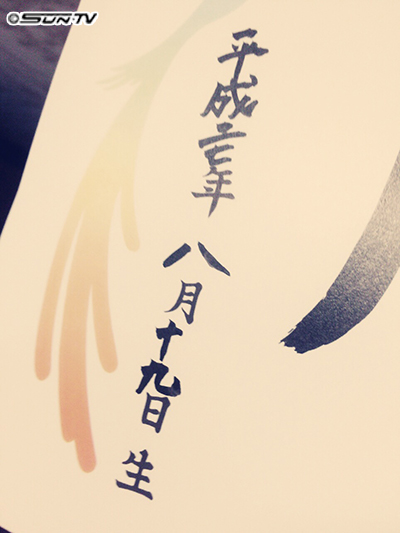 SUN-TV
平成二七年
八月十九日 生